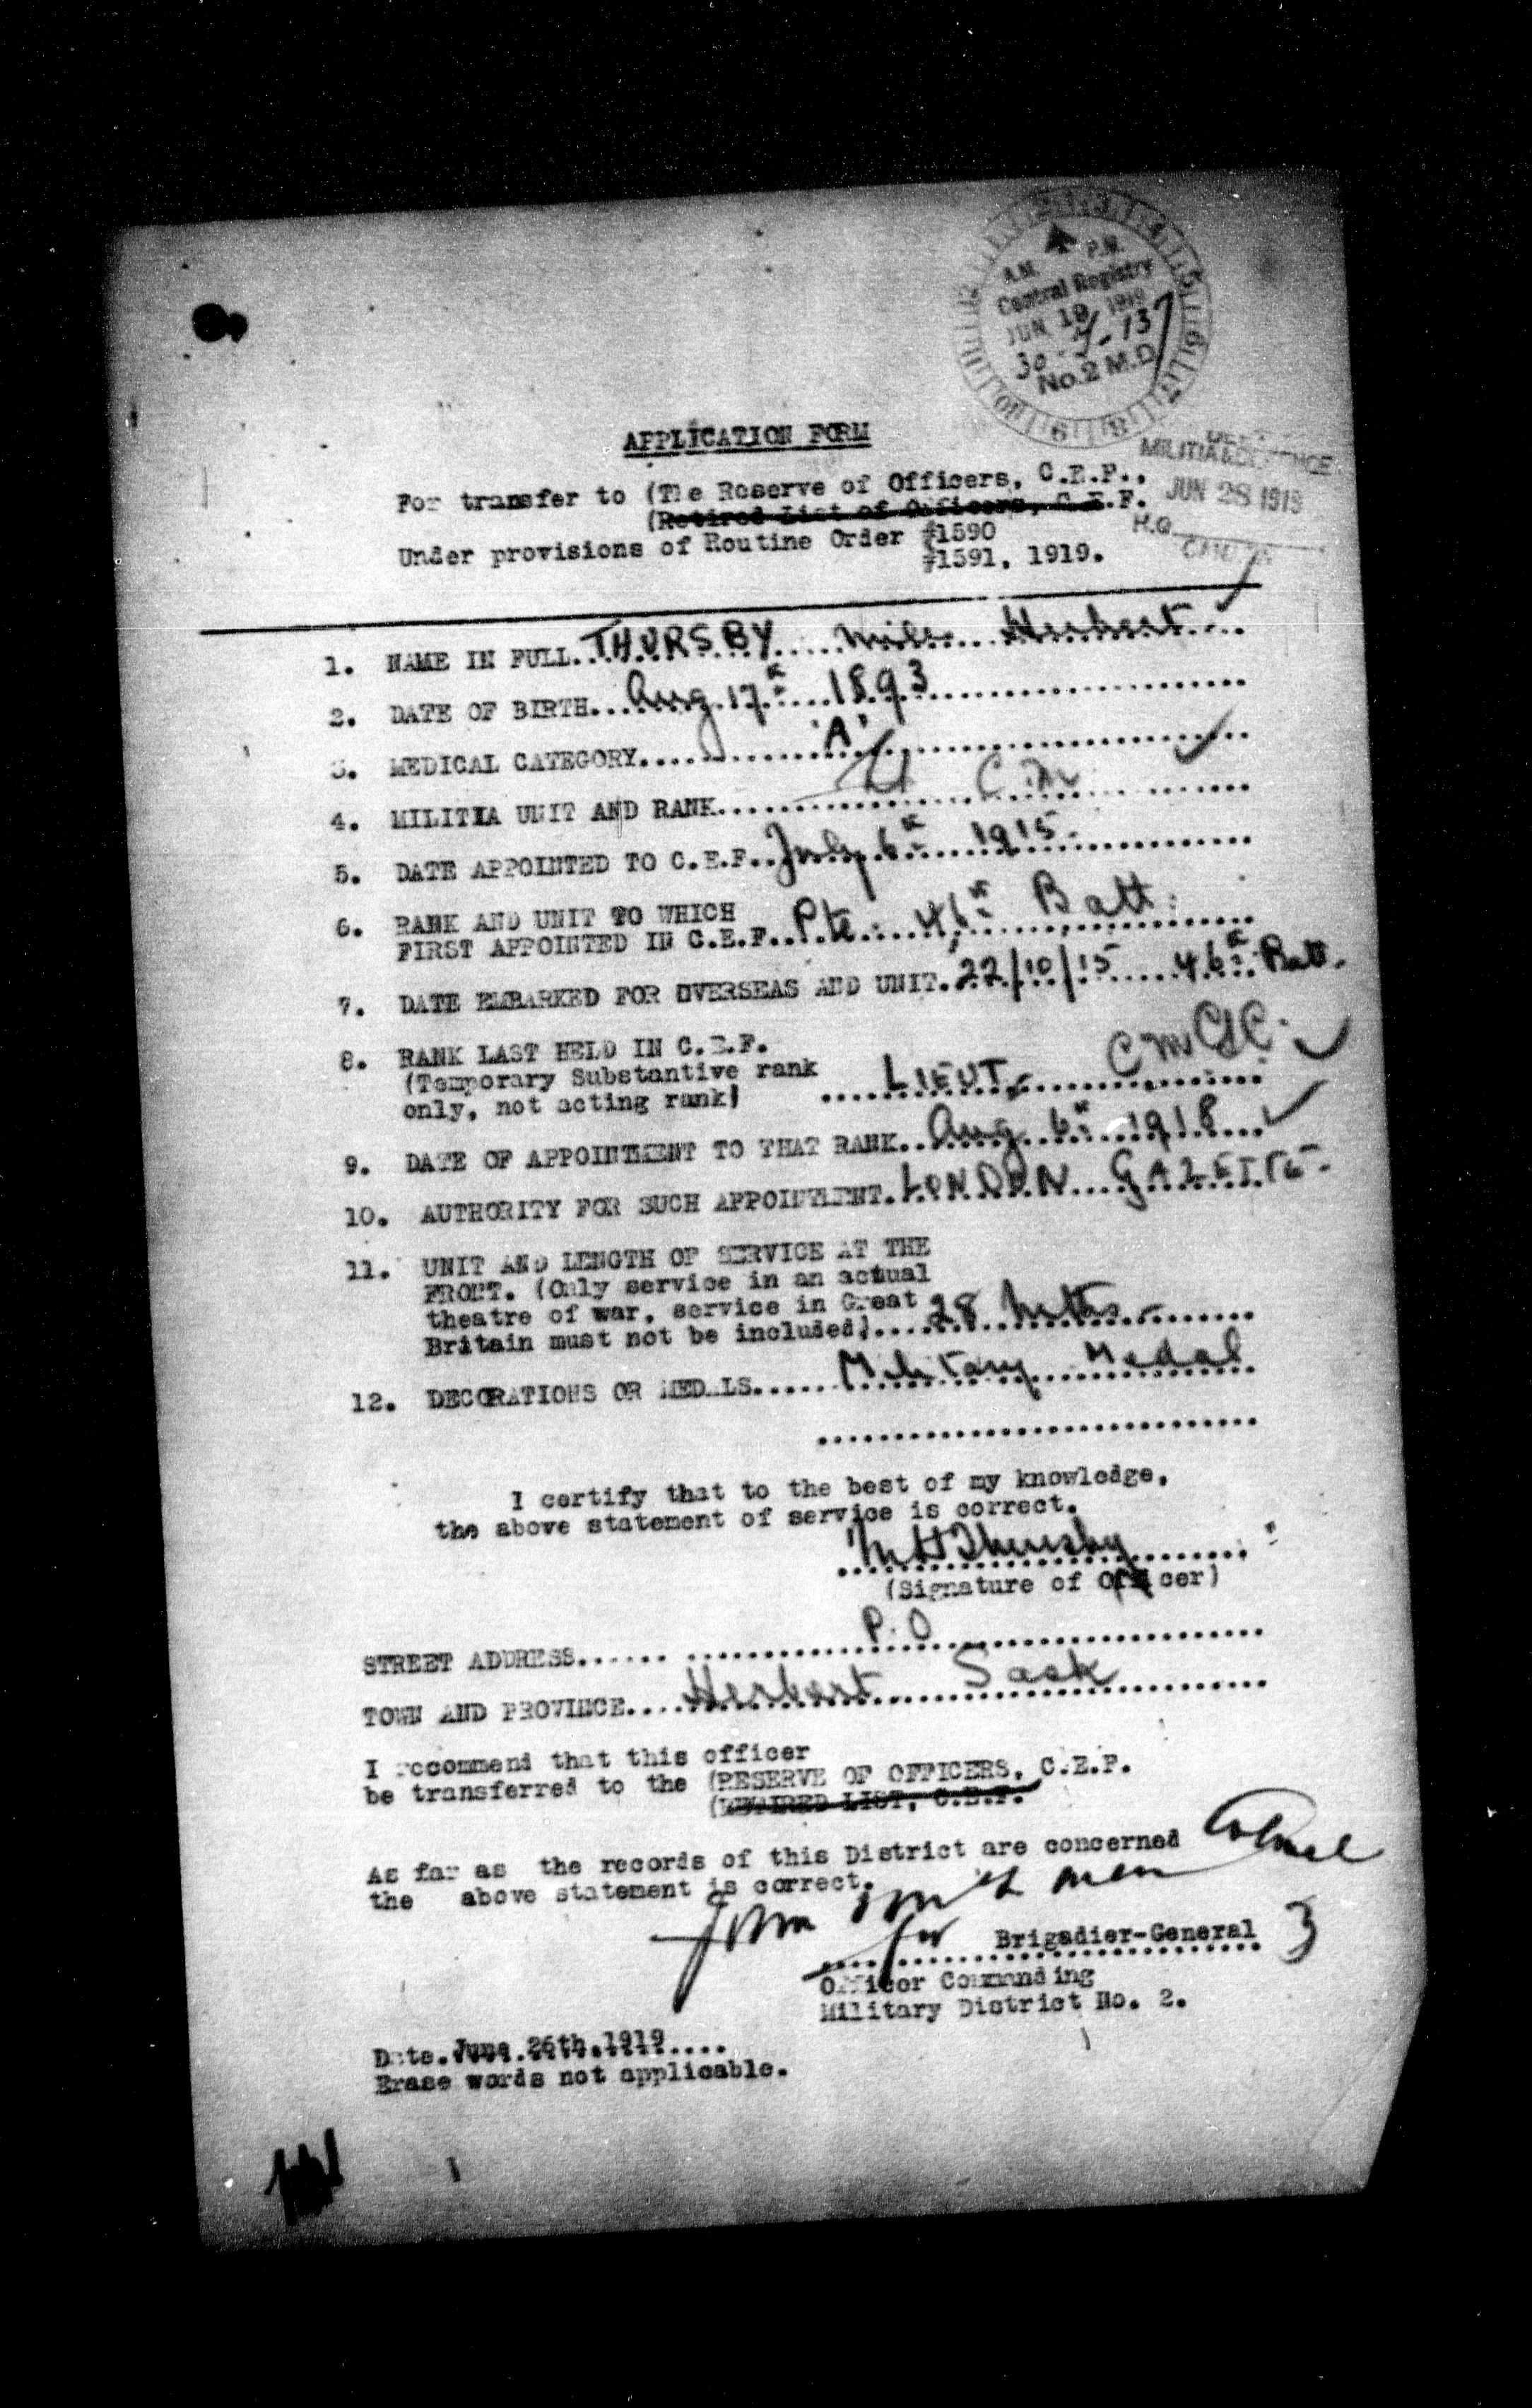 A.M. P.M.
Central Registry
JUN 19 1919
30-T-137
No. 2 M.D.
APPLICATION FORM
MILITIA & DEFENCE
JUN 28 1919
H.Q.
For transfer to (The Reserve of Officers, C.E.F.,
(Retired List of Officers, C.E.F.
Under provisions of Routine Order #1590
#1591, 1919.
1. NAME IN FULL...THURSBY Herbert
2. DATE OF BIRTH...Aug. 17th 1893
3. MEDICAL CATEGORY..... 'A'
4. MILITIA UNIT AND RANK.....
5. DATE APPOINTED TO C.E.F..July 6th 1915.
6. RANK AND UNIT TO WHICH
FIRST APPOINTED IN C.E.F...Pte. 46th Batt.
7. DATE EMBARKED FOR OVERSEAS AND UNIT..22/10/15 46th Batt.
8. RANK LAST HELD IN C.E.F.
(Temporary Substantive rank
only, not acting rank) LIEUT. C.M.G.C.
9. DATE OF APPOINTMENT TO THAT RANK..Aug 6th 1918
10. AUTHORITY FOR SUCH APPOINTMENT..LONDON GAZETTE.
11. UNIT AND LENGTH OF SERVICE AT THE
FRONT. (Only service in an actual
theatre of war, service in Great
Britain must not be included)....28 Mths
12. DECORATIONS OR MEDALS.....Military Medal
I certify that to the best of my knowledge,
the above statement of service is correct.
M H Thursby
(Signature of Officer)
STREET ADDRESS...... P.O
TOWN AND PROVINCE....Herbert Sask
I recommend that this officer
be transferred to the (RESERVE OF OFFICERS, C.E.F.
(RETIRED LIST, C.E.F.
As far as the records of this District are concerned
the above statement is correct.
Colonel
for Brigadier-General
Officer Commanding
Military District No. 2.
Date.June 26th.1919....
Erase words not applicable.